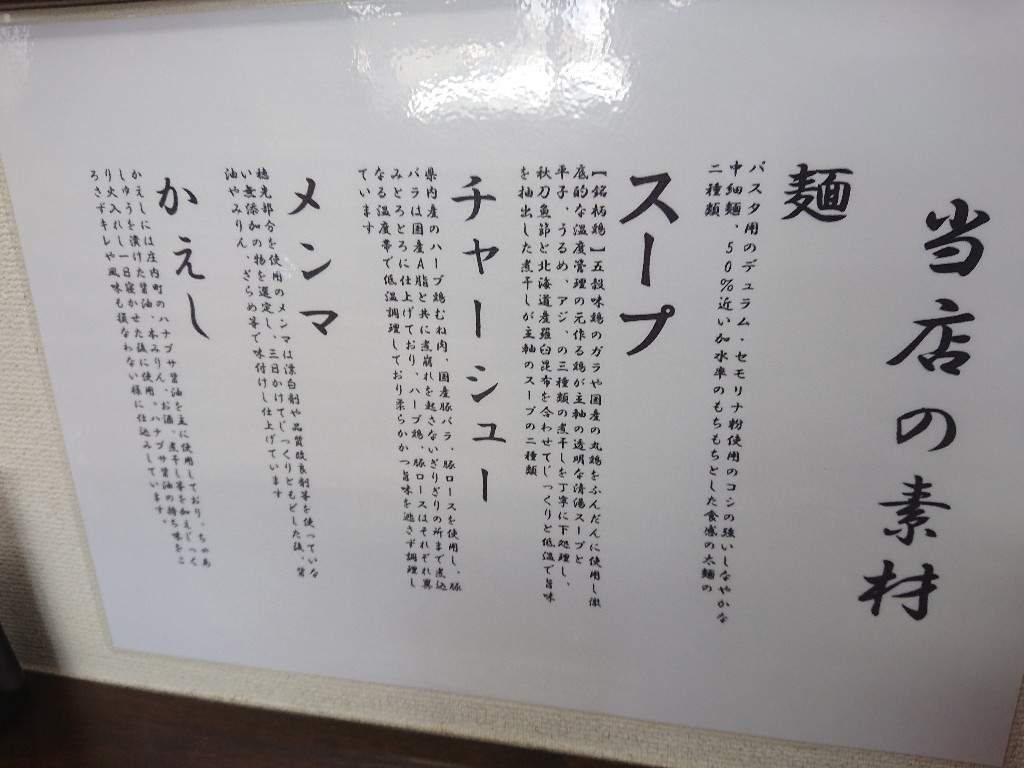 当店の素材
麺
パスタ用のデュラム・セモリナ粉使用のコシの強いしなやかな
中細麺、50%近い加水率のもちもちとした食感の太麺の
二種類
スープ
【銘柄鶏】五穀味鶏のガラや国産の丸鶏をふんだんに使用し徹
底的な温度管理の元作る鶏が主軸の透明な清湯スープと
平子、うるめ、アジ、の三種類の煮干しを丁寧に下処理し、
秋刀魚節と北海道産羅臼昆布を合わせてじっくりと低温で旨味
を抽出した煮干しが主軸のスープの二種類
チャーシュー
県内産のハーブ鶏むね肉、国産豚バラ、豚ロースを使用し、豚
バラは国産A脂と共に煮崩れを起さないぎりぎりの所まで煮込
みとろとろに仕上げており、ハーブ鶏、豚ロースはそれぞれ異
なる温度帯で低温調理しており柔らかかつ旨味を逃さず調理し
ています
メンマ
穂先部分を使用のメンマは漂白剤や品質改良剤等を使っていな
い無添加の物を選定し、三日かけてじっくりともどした後、醤
油やみりん、ざらめ等で味付けし仕上げています
かえし
かえしには庄内町のハナブサ醤油を主に使用しており、ちゃあ
しゅうを漬けた醤油、本みりん、お酒、煮干し等を加えじっく
り火入れし一日寝かせた後に使用、ハナブサ醤油の持ち味をこ
ろさずキレや風味も損なわない様に仕込みしています。